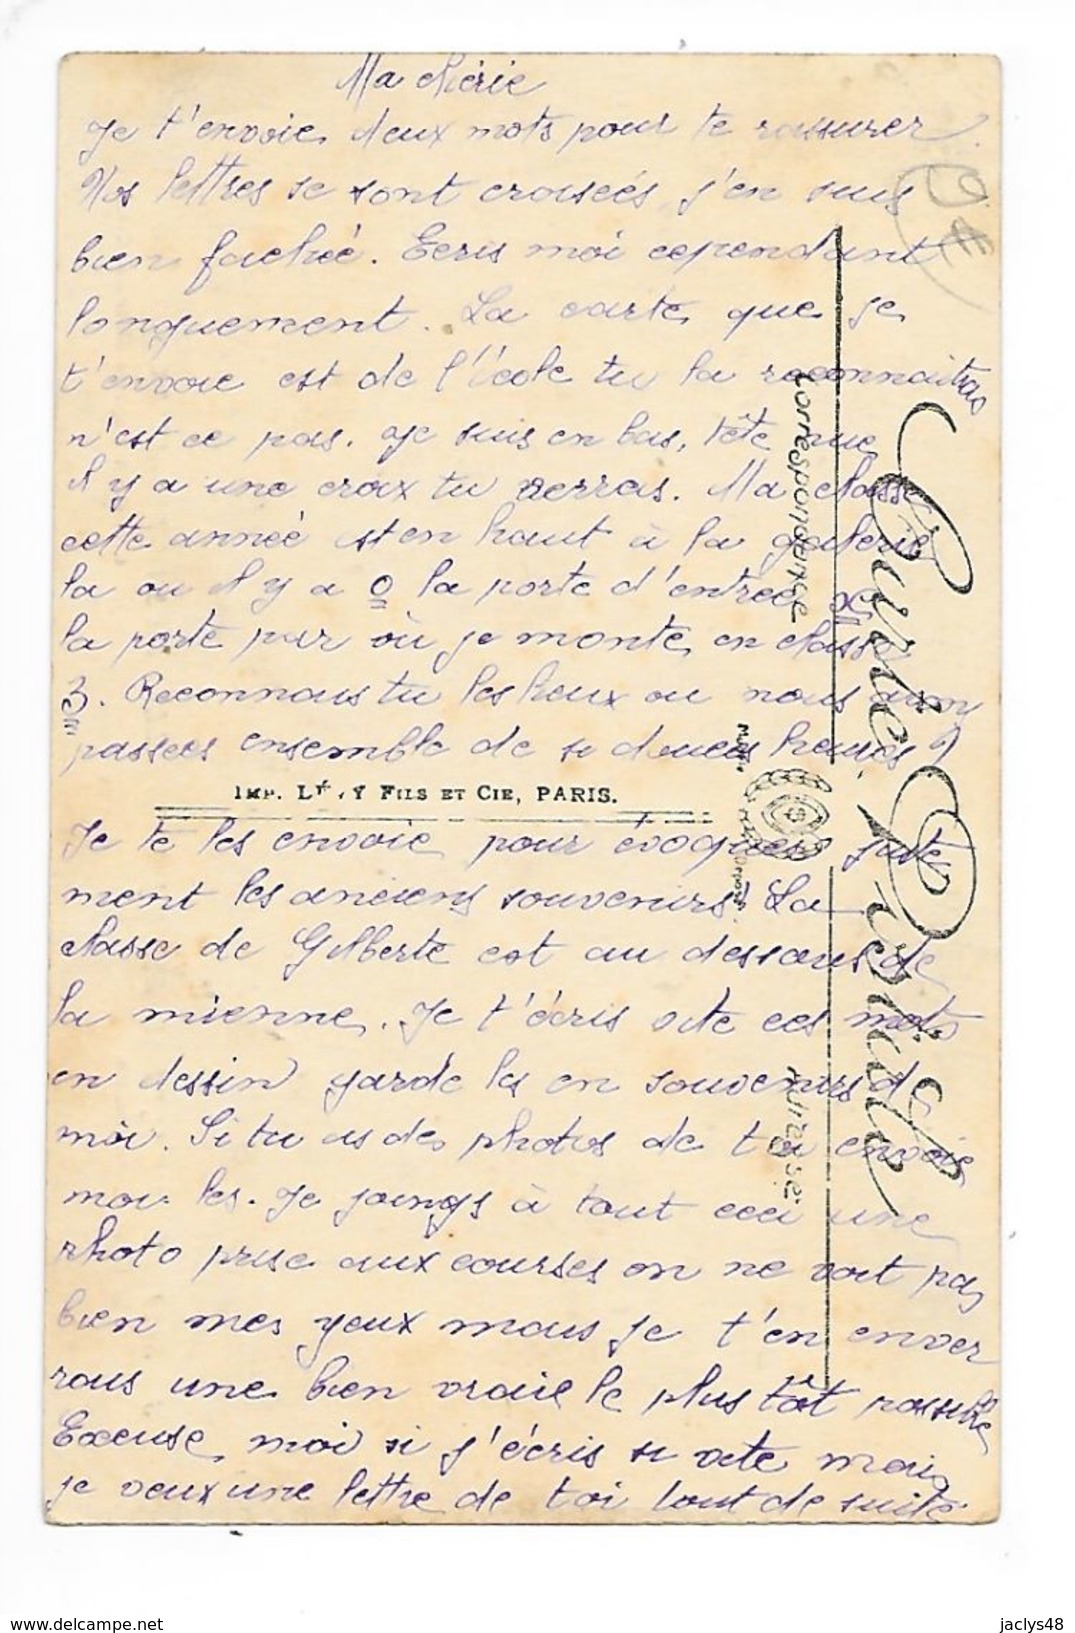 Ma chérie
Je t'envoie deux mots pour te rassurer.
Nos lettres se sont croiseés j'en suis
bien fachée. Ecris moi cependant
longuement. La carte que je
t'envoie est de l'école tu la reconnaitras
n'est ce pas. Je suis en bas, tête nue
il y a une croix tu verras. Ma classe
cette année est en haut à la galerie
la ou il y a o la porte d'entrée
la porte par où je monte en classe
3. Reconnais tu les lieux ou nous avons
passees ensemble de si douces heures ?
IMP. LÉVY FILS ET CIE, PARIS.
Je te les envoie pour évoquer juste
ment les anciens souvenirs! La
classe de Gilberte est au dessous de
la mienne. Je t'écris vite ces mots
en dessin garde les en souvenirs de
moi. Si tu as des photos de toi envoie
moi les. Je joings à tout ceci une
photo prise aux courses on ne voit pas
bien mes yeux mais je t'en enver
rais une bien vraie le plus tôt possible
Excuse moi si j'écris si vite mais
je veux une lettre de toi tout de suite
Carte Postale
Correspondance
Adresse
9€
www.delcampe.net
jaclys48